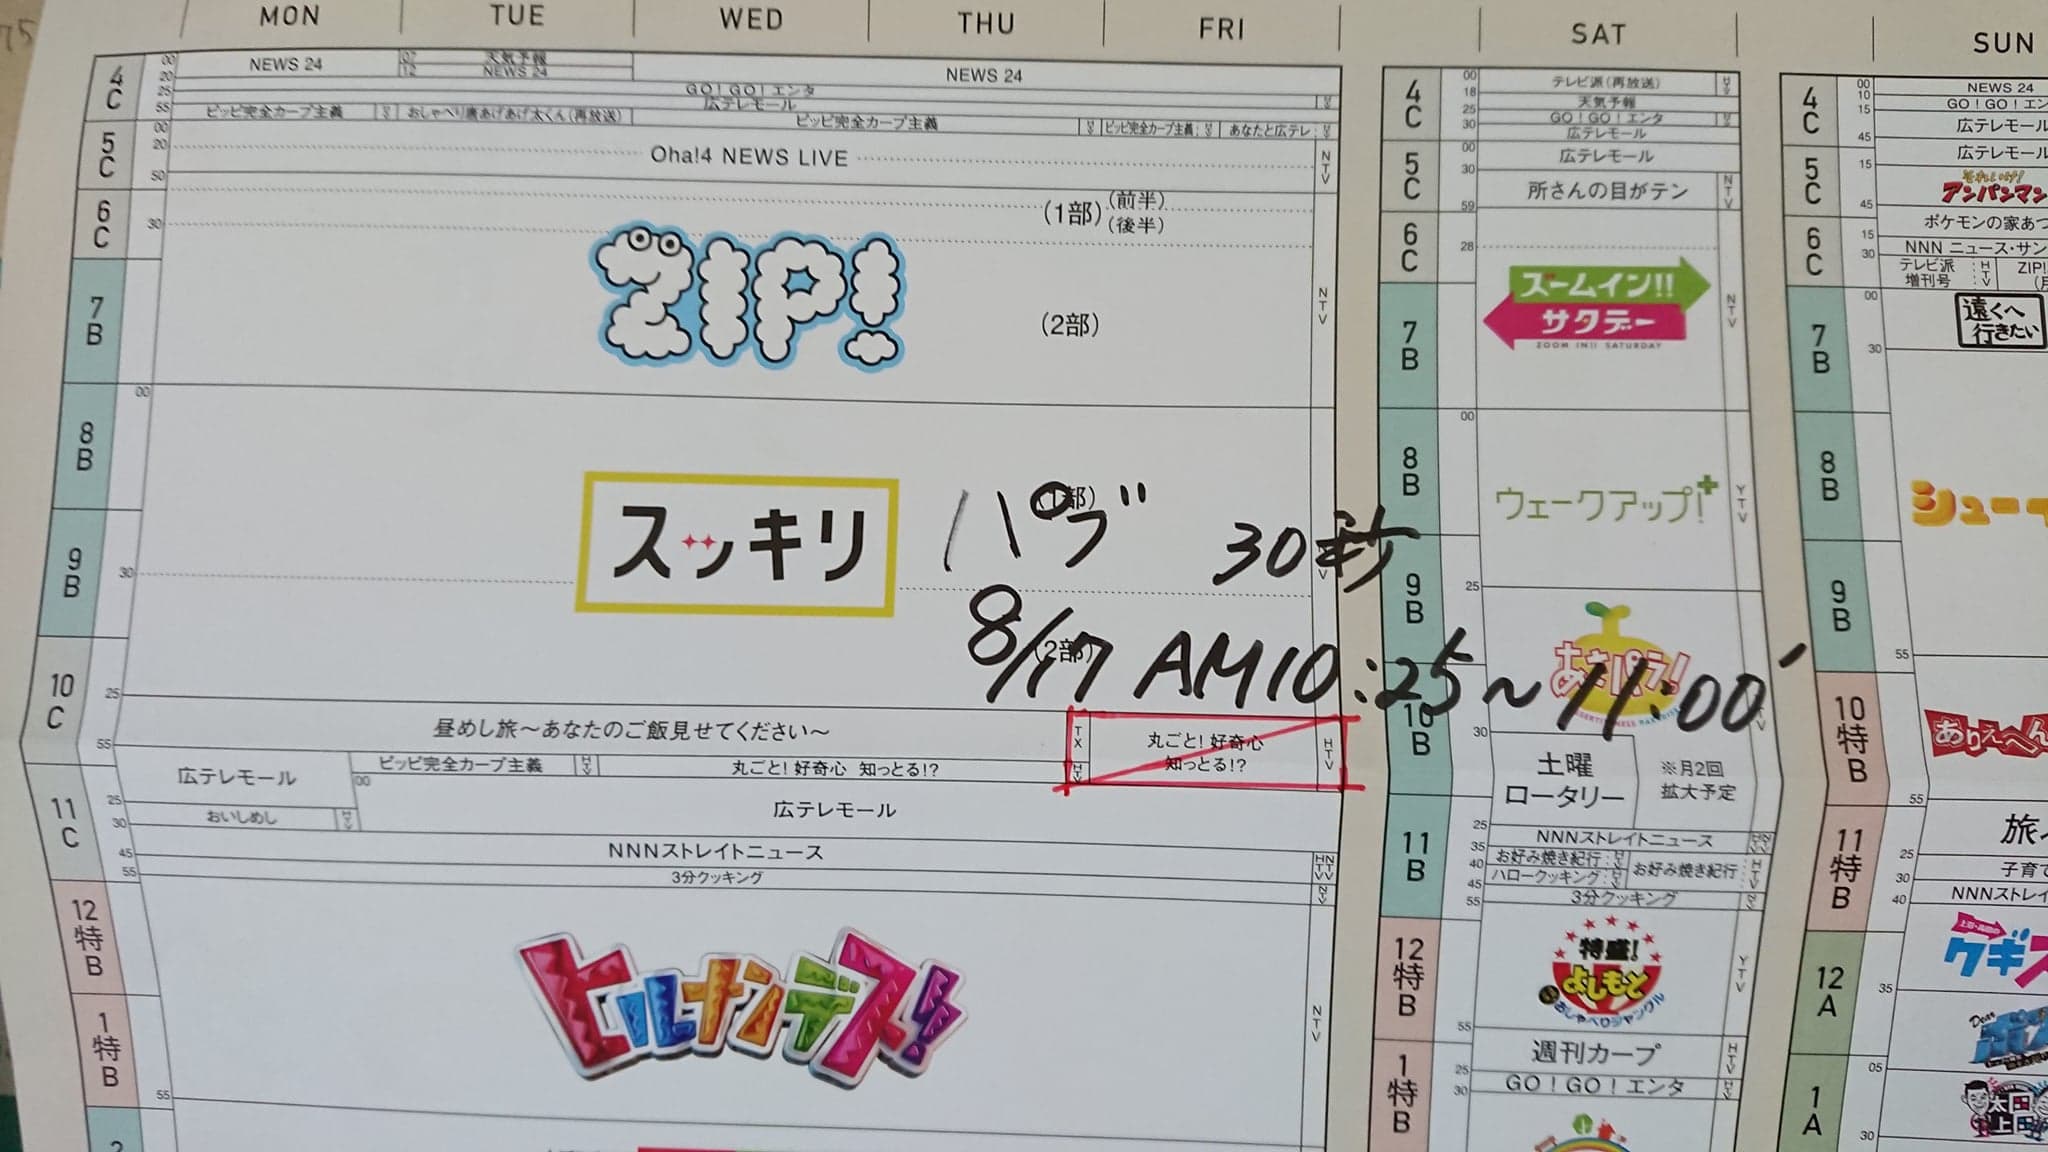 MON TUE WED THU FRI SAT SUN
4
C
00
20
25
55
NEWS 24
07
12
天気予報
NEWS 24
NEWS 24
GO!GO!エンタ
広テレモール
ピッピ完全カープ主義
おしゃべり唐あげあげ太くん(再放送)
ピッピ完全カープ主義
ピッピ完全カープ主義
あなたと広テレ
5
C
00
20
50
Oha!4 NEWS LIVE
NTV
6
C
30
(1部)
(前半)
(後半)
7
B
ZIP!
(2部)
NTV
8
B
00
9
B
30
スッキリ
(1部)
パブ 30秒
8/17 AM10:25~11:00
(2部)
10
C
25
55
昼めし旅〜あなたのご飯見せてください〜
TX
HTV
丸ごと!好奇心
知っとる!?
HTV
11
C
広テレモール
00
ピッピ完全カープ主義
HTV
丸ごと!好奇心 知っとる!?
25
30
おいしめし
HTV
広テレモール
45
NNNストレイトニュース
55
3分クッキング
12
特
B
ヒルナンデス!
NTV
1
特
B
55
2
4
C
00
18
25
30
テレビ派(再放送)
天気予報
GO!GO!エンタ
広テレモール
5
C
00
30
59
広テレモール
所さんの目がテン
NTV
6
C
28
7
B
ズームイン!!
サタデー
ZOOM IN!! SATURDAY
NTV
8
B
00
ウェークアップ!+
YTV
9
B
25
あさパラ!
10
B
30
土曜
ロータリー
※月2回
拡大予定
11
B
25
35
40
45
55
NNNストレイトニュース
お好み焼き紀行
ハロークッキング
お好み焼き紀行
HTV
3分クッキング
12
特
B
特盛!
よしもと
おしゃべりジャングル
YTV
55
1
特
B
週刊カープ
HTV
25
30
GO!GO!エンタ
4
C
00
10
15
45
NEWS 24
GO!GO!エン
広テレモール
5
C
15
45
広テレモール
それいけ!
アンパンマン
6
C
15
30
ポケモンの家あつ
NNN ニュース・サン
テレビ派
増刊号
HTV
ZIP!
7
B
00
30
遠くへ
行きたい
8
B
シューイ
9
B
55
10
特
B
ありえへん
55
11
特
B
旅
25
30
40
子育て
NNNストレイ
12
A
クギズ
35
Dear
1
A
05
30
太田
上田